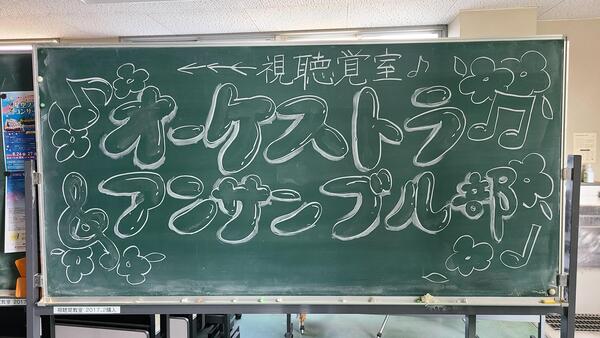 ←←← 視聴覚室♪
オーケストラ
アンサンブル部
視聴覚教室 2017.2購入